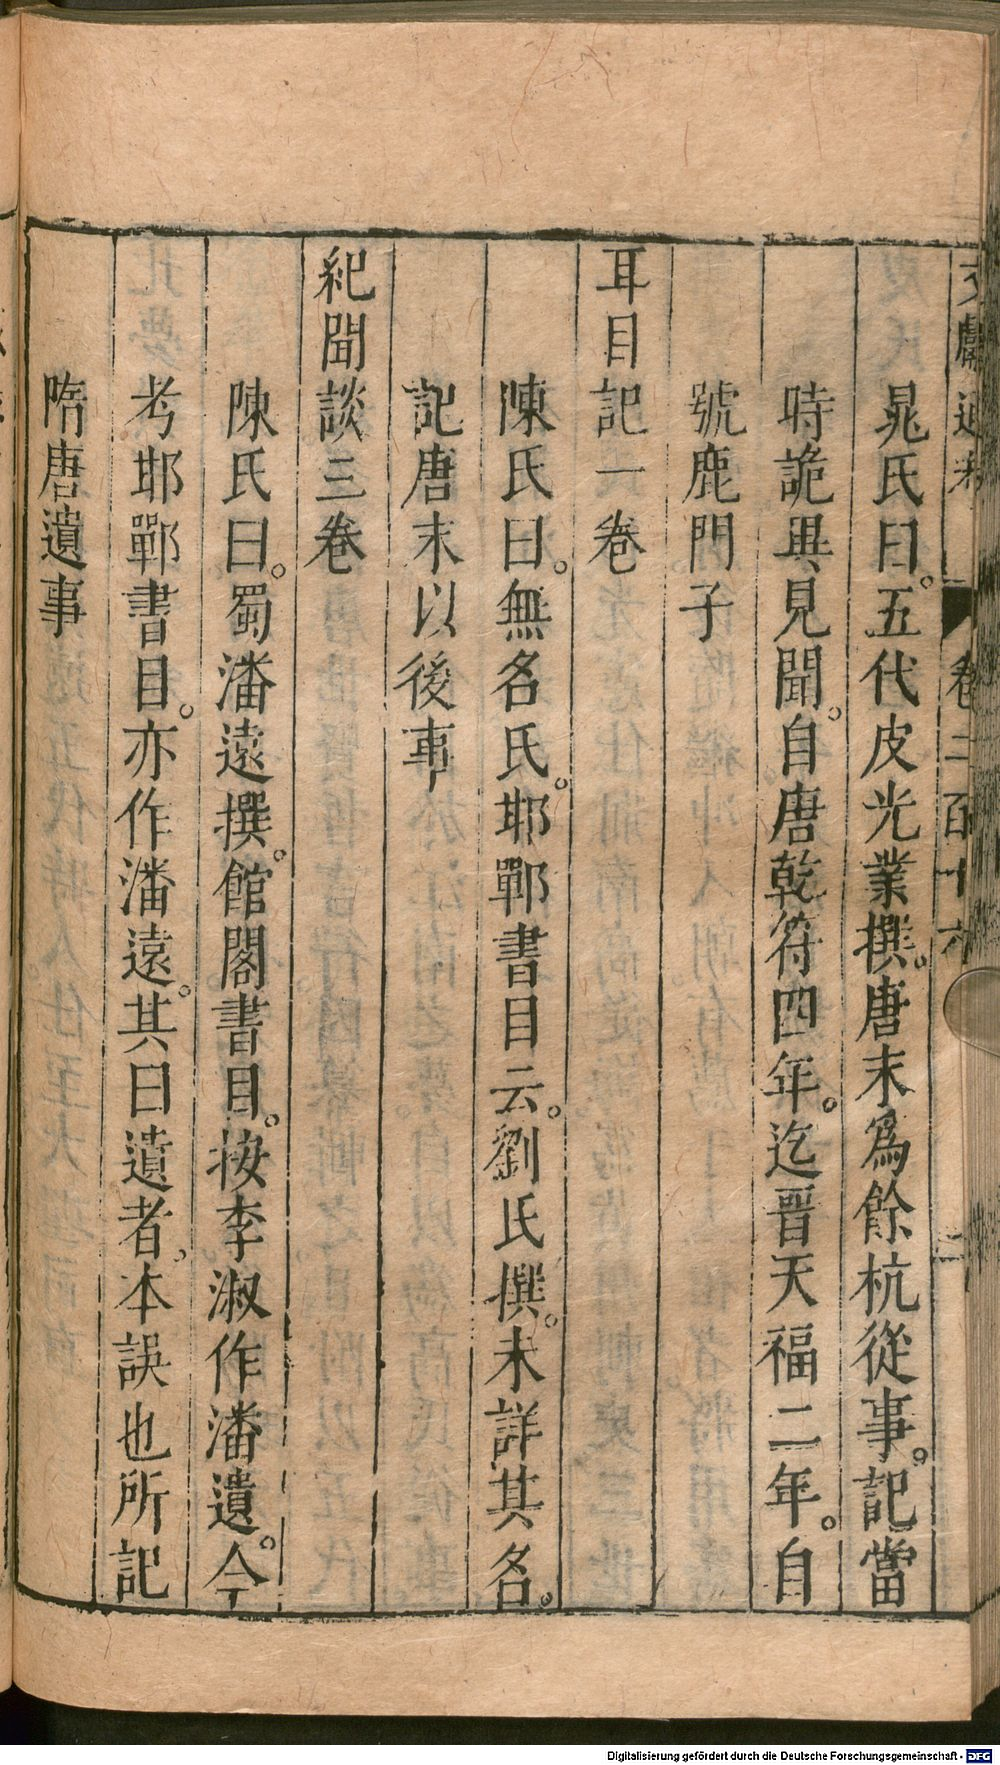 文獻通考 卷二百十六 二
晁氏曰。五代皮光業撰。唐末爲餘杭從事。記當
時詭異見聞。自唐乾符四年。迄晋天福二年。自
號鹿門子
耳目記一卷
陳氏曰。無名氏。耶鄲書目云。劉氏撰。未詳其名。
記唐末以後事
紀聞談三卷
陳氏曰。蜀潘遠撰。館閣書目。按李淑作潘遺。今
考耶鄲書目。亦作潘遠。其曰遺者。本誤也所記
隋唐遺事
Digitalisierung gefördert durch die Deutsche Forschungsgemeinschaft - DFG